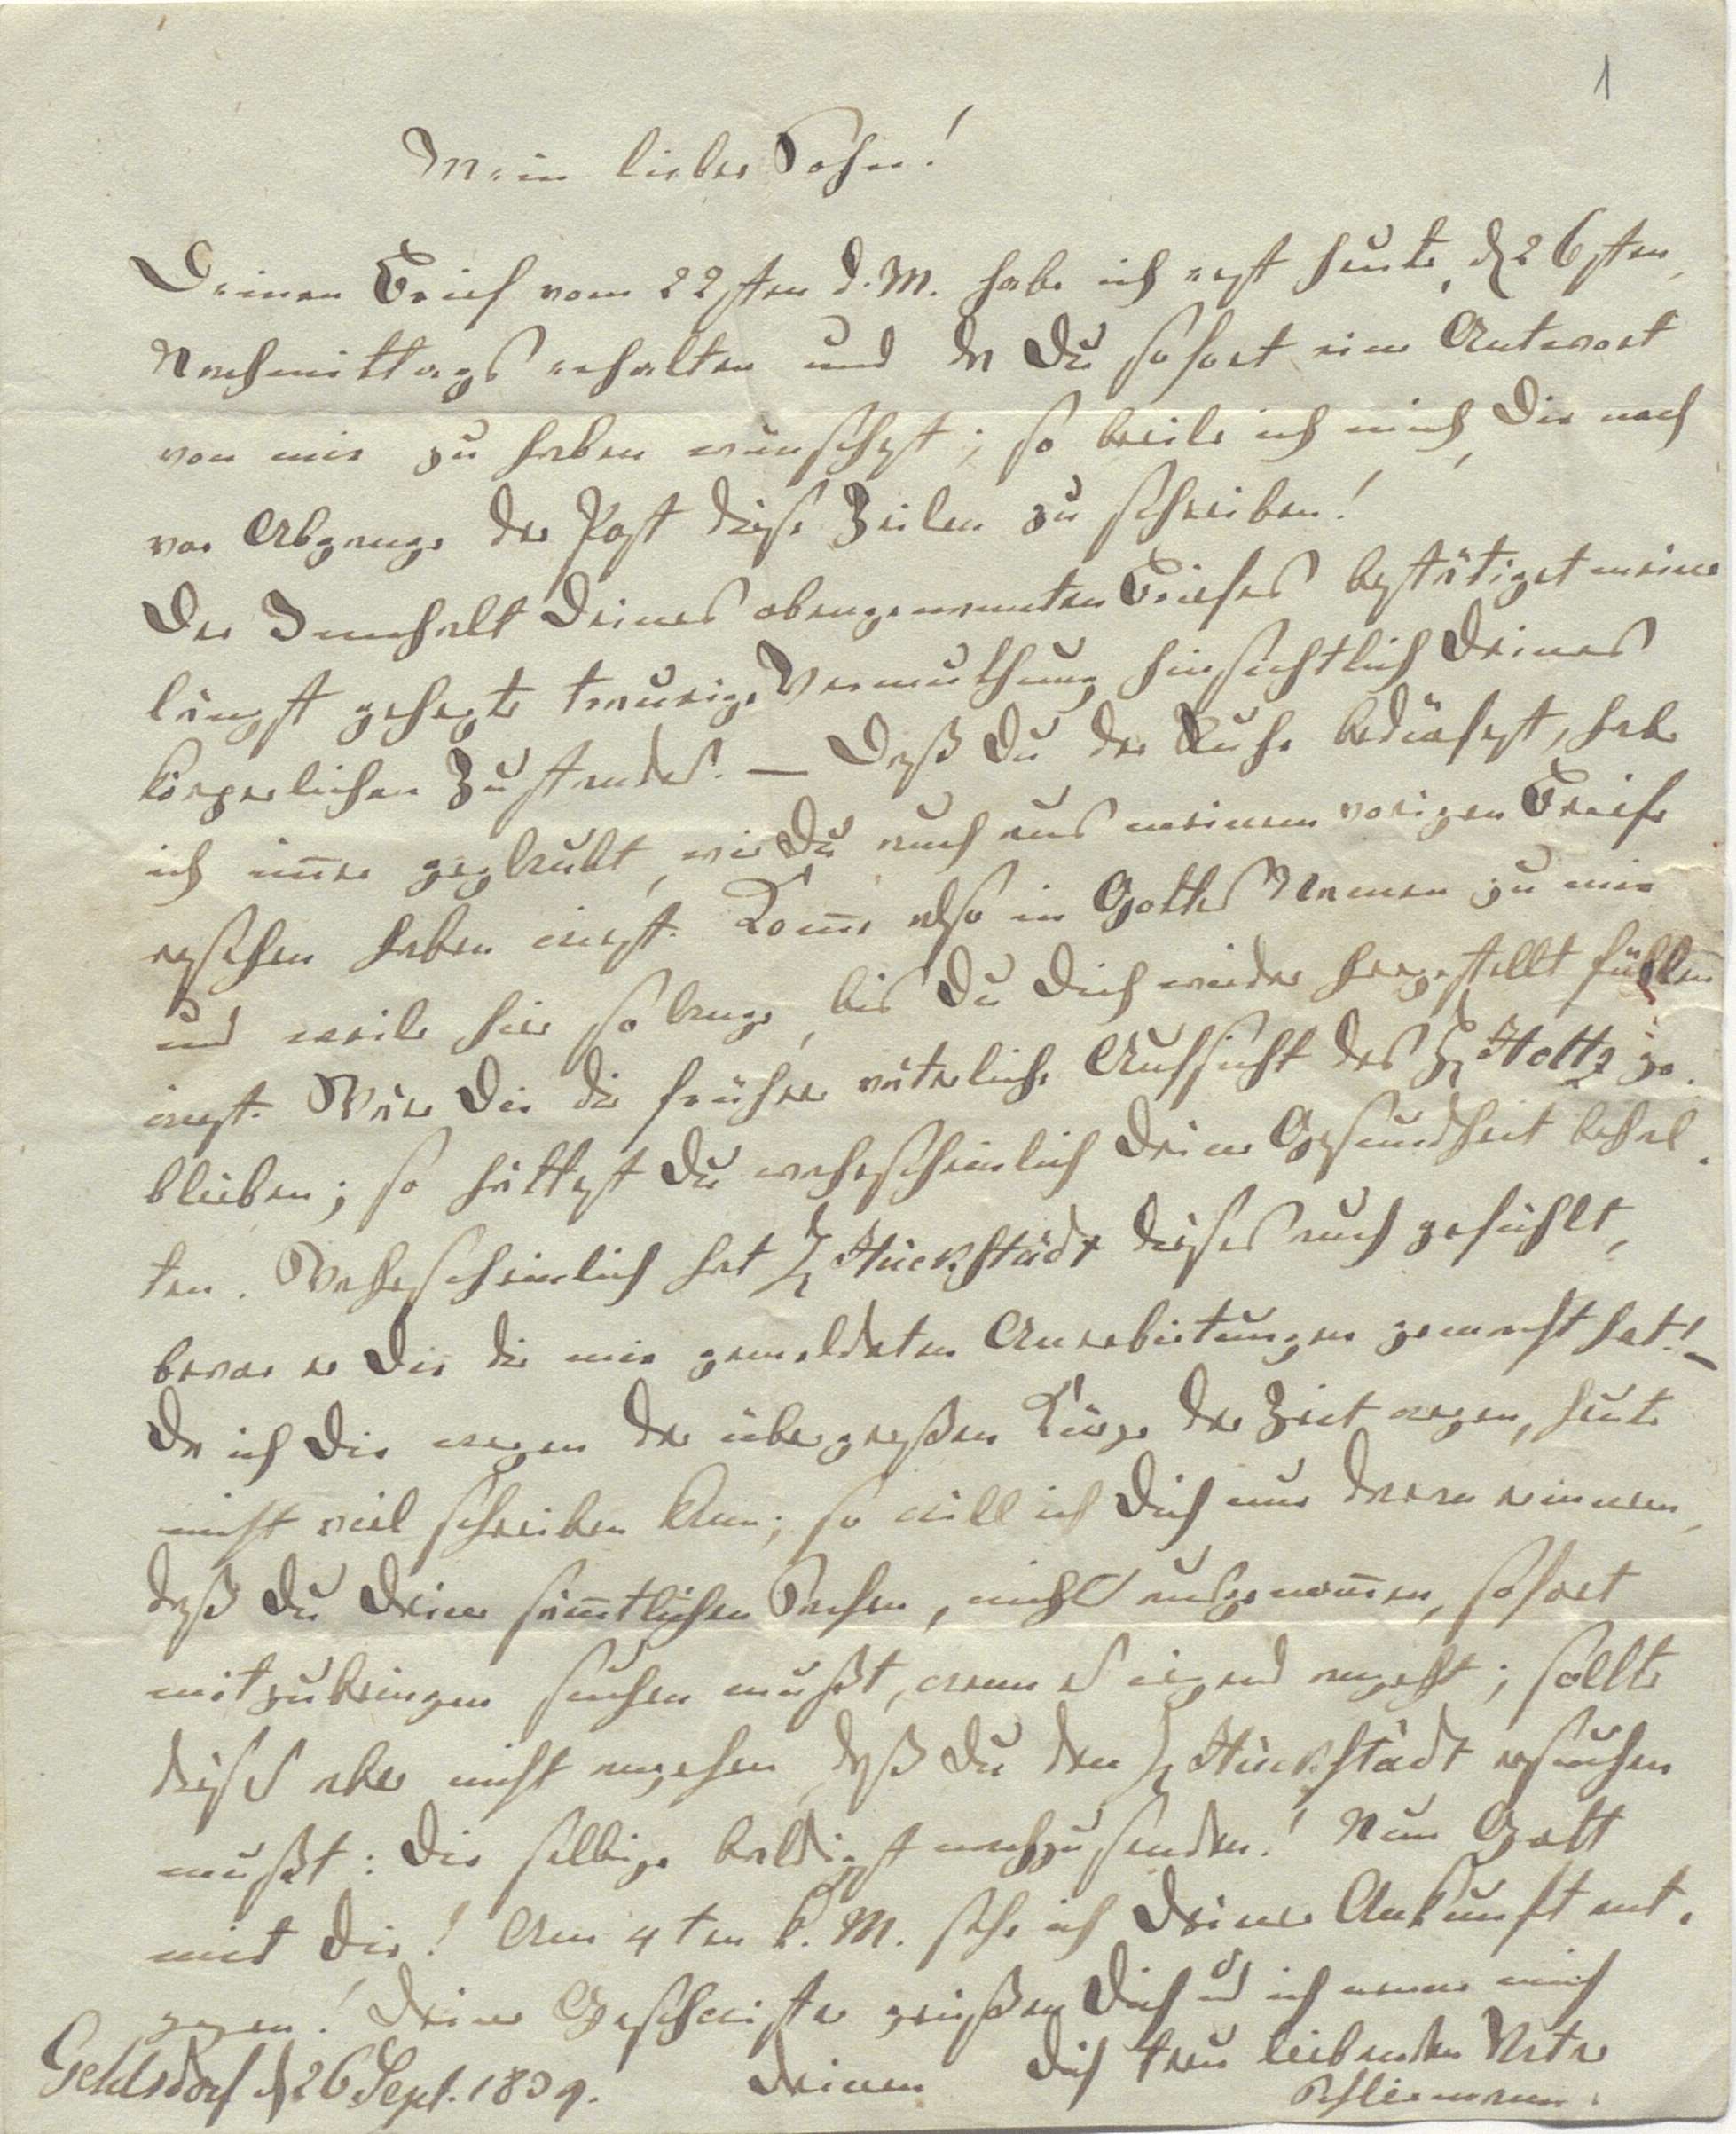 1
Mein lieber Sohn!
Deinen Brief vom 22sten d. M. habe ich erst heute, d 26sten,
Nachmittags erhalten und da Du sofort eine Antwort
von mir zu haben wünschest; so beeile ich mich, Dir noch
vor Abgange der Post diese Zeilen zu schreiben!
Der Innhalt Deines obengenannten Briefes bestätiget meine
längst gehegte traurige Vermuthung hinsichtlich Deines
körperlichen Zustandes. — Daß Du der Ruhe bedürfest, habe
ich im̅er geglaubt, wie Du auch aus meinem vorigen Briefe
ersehen haben wirst. Kom̅e also in Gottes Namen zu mir
und weile hier so lange, bis Du Dich wieder hergestellt fühlen
wirst. Wäre Dir die frühere väterliche Aufsicht des H Holtz ge-
blieben; so hättest Du wahrscheinlich Deine Gesundheit behal-
ten. Wahrscheinlich hat H Hückstädt dieses auch gefühlt,
bevor er Dir die mir gemeldeten Anerbietungen gemacht hat! —
Da ich Dir wegen der übergroßen Kürze der Zeit wegen, heute
nicht viel schreiben kann; so will ich Dich nur daran erinnern,
daß Du Deine säm̅tlichen Sachen, nichts ausgenom̅en, sofort
mitzubringen suchen mußt, wenn es irgend angeht; sollte
dieses aber nicht angehen, daß Du den H Hückstädt ersuchen
mußt: Dir selbige baldigst nachzusenden! Nun Gott
mit Dir! Am 4ten k. M. sehe ich Deiner Ankunft ent-
gegen! Deine Geschwister grüßen Dich ud ich nenne mich
Deinen Dich treu liebenden Vater
Schliemann.
Gehlsdorf d 26 Sept. 1839.